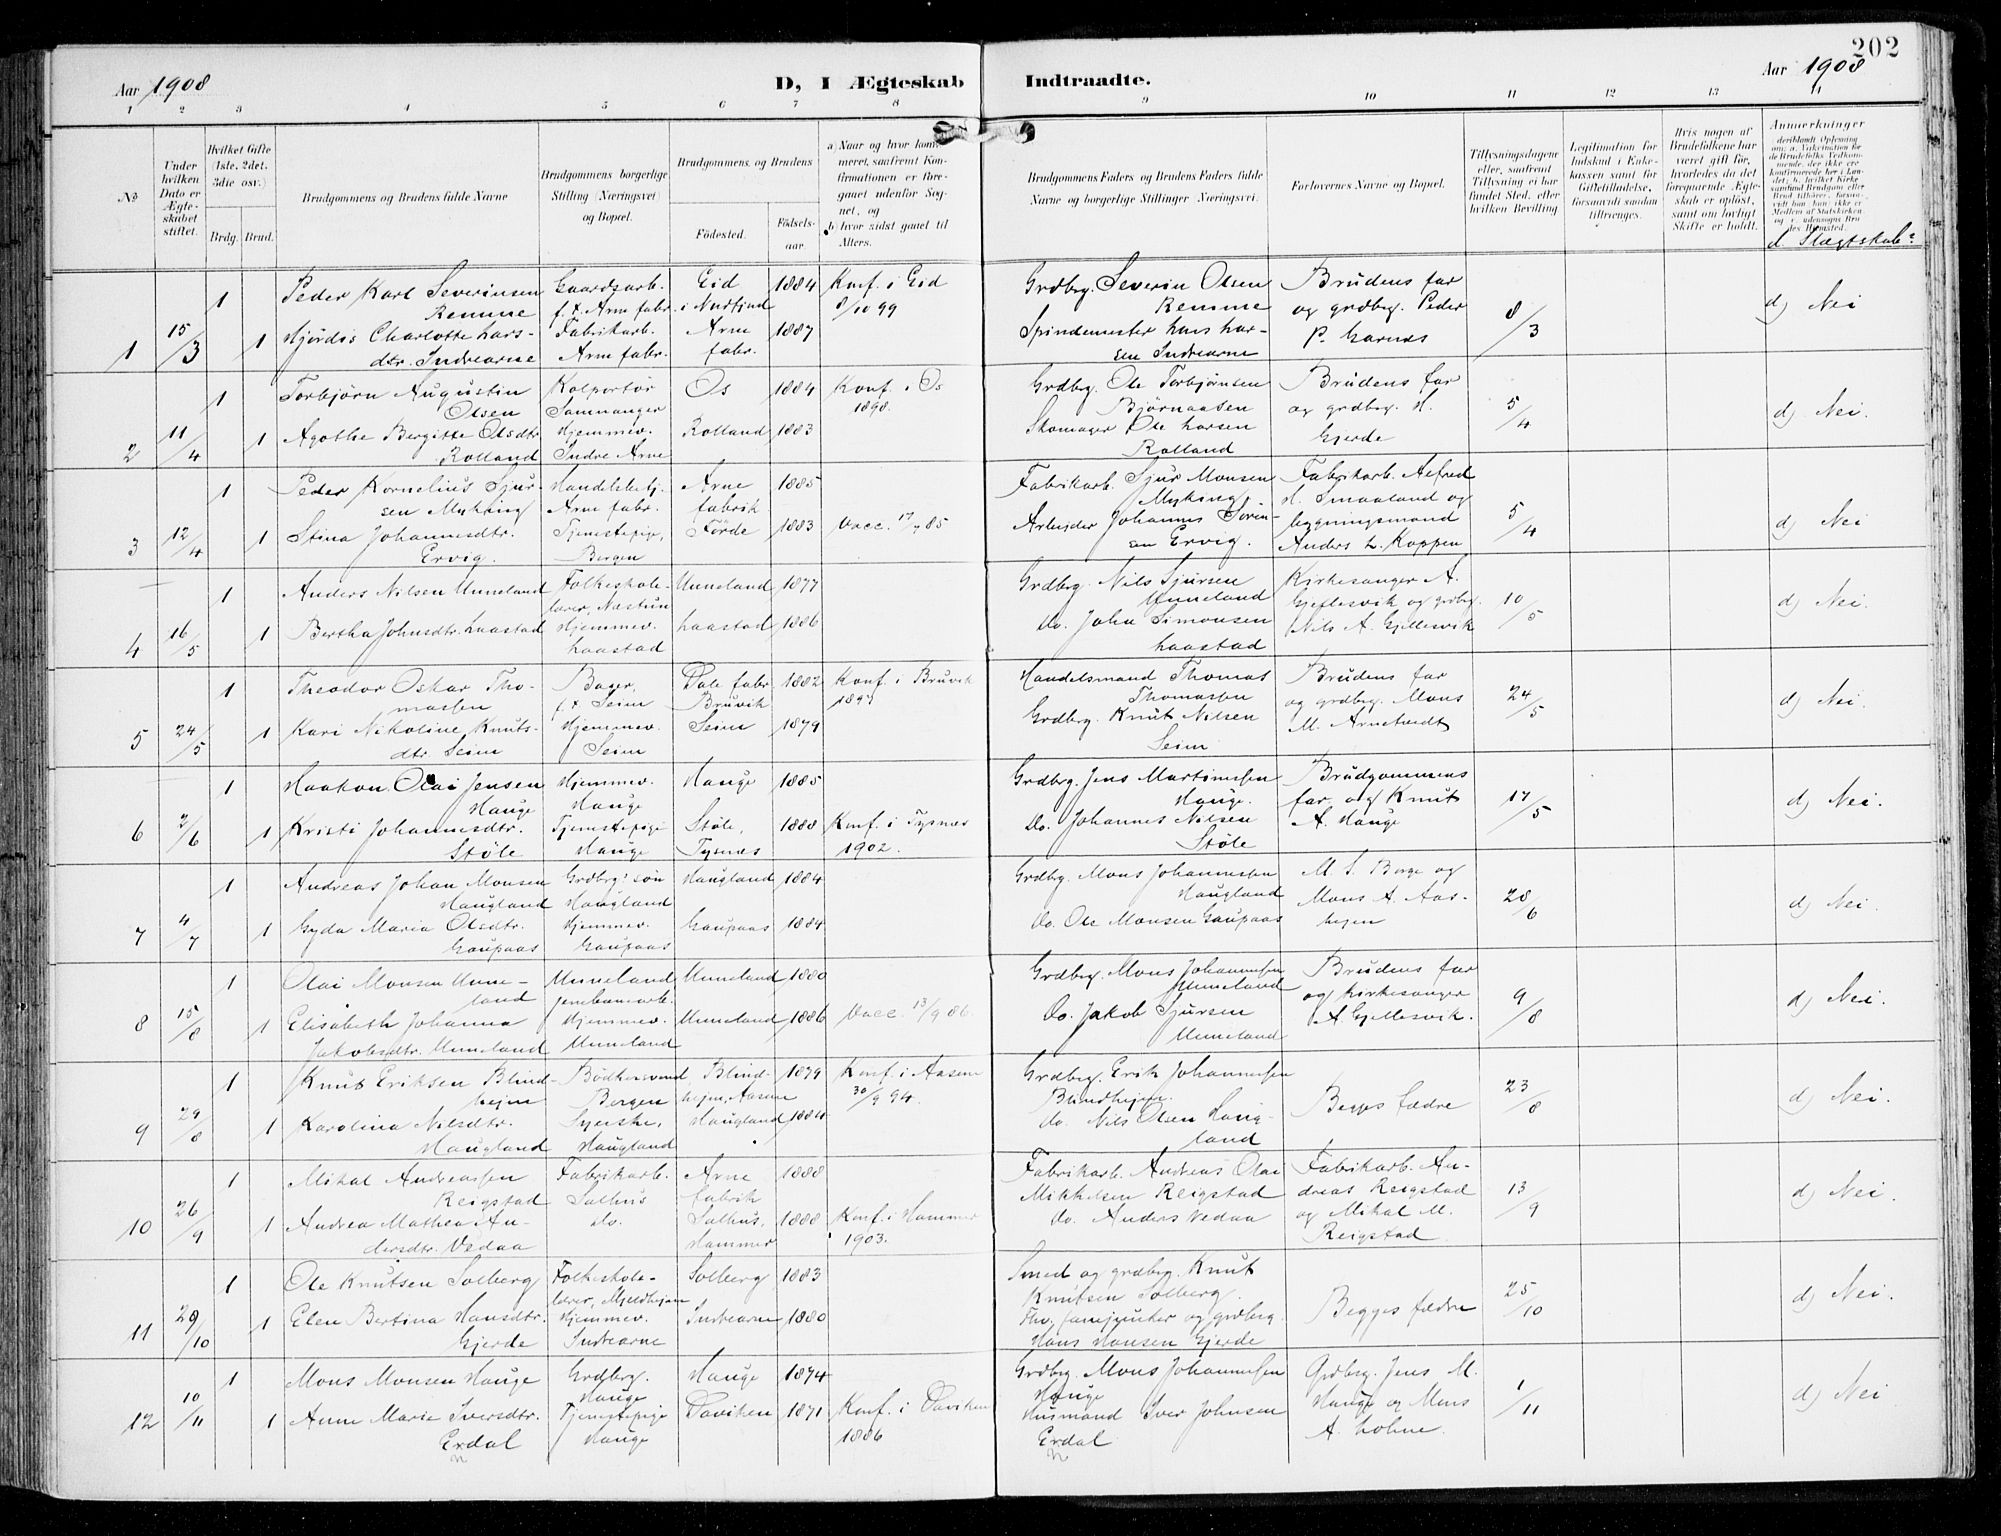 202
Aar 1908
D, I Ægteskab Indtraadte.
Aar 1908
1 2 3 4 5 6 7 8 9 10 11 12 13 14
No
Under hvilken Dato er Ægteskabet stiftet.
Hvilket Gifte (1ste, 2det, 3die osv.)
Brdg. Brud.
Brudgommens og Brudens fulde Navne
Brudgommens borgerlige Stilling (Næringsvei) og Bopæl.
Brudgommens og Brudens
Fødested.
Fødselsaar.
a) Naar og hvor kommeret, saafremt Konfirmationen er foregaaet udenfor Sognet, og
b) hvor sidst gaaet til Alters.
Brudgommens Faders og Brudens Faders fulde Navne og borgerlige Stillinger Næringsvei.
Forlovernes Navne og Bopæl.
Tillysningsdagene eller, saafremt Tillysning ei har fundet Sted, efter hvilken Bevilling
Legitimation for Indskud i Enkekassen samt for Giftetilladelse, forsaavidt saadan tiltrænges.
Hvis nogen af Brudefolkene har været gift før, hvorledes da det foregaaende Ægteskab er opløst, samt om lovligt Skifte er holdt.
Anmerkninger
d Slægtskab?
1 15/3
1 Peder Karl Severinsen Remme
Gaardsarb. f. t. Arne fabr.
Eid i Nordfjord 1884
Konf. i Eid 8/10 99
Grdbrg. Severin Olsen Remme
Brudens far og grdbrg. Peder P. Garnes
8/3
d) Nei
1 Hjørdis Charlotte Larsdtr. Indrearne
Fabrikarb. Arne fabr.
Arne fabr. 1887
Spindemester Lars Larsen Indrearne
2 11/4
1 Torbjørn Augustin Olsen
Kolportør Samnanger
Os 1884
Konf. i Os 1898.
Grdbrg. Ole Torbjørnsen Bjørnaasen
Brudens far og grdbrg. H. Gjerde
5/4
d) Nei.
1 Agathe Bergitte Olsdtr. Rolland
Hjemmev. Indre Arne
Rolland 1883
Skomager Ole Larsen Rolland
3 12/4
1 Peder Kornelius Sjursen Myking
Handelsbetj. Arne fabr.
Arne fabrik 1885
Fabrikarb. Sjur Monsen Myking
Fabrikarb. Alfred H. Smaaland og bygningsmand Anders L. Koppen
5/4
d) Nei
1 Stina Johannesdtr. Ervig.
Tjenestepige, Bergen
Førde 1883
Arbejder Johannes Sørensen Ervig.
4 16/5
1 Anders Nilsen Unneland
Folkeskolelærer, Næstun
Unneland 1877
Grdbrg. Nils Sjursen Unneland
Kirkesanger A. Gjellesvik og grdbrg. Nils A. Gjellesvik
10/5
d) Nei.
1 Bertha Johnsdtr. Laastad
Hjemmev. Laastad
Laastad 1886
Do. John Simonsen Laastad
5 24/5
1 Theodor Oskar Thomassen
Bager, f. t. Seim
Dale fabr. Bruvik 1882
Konf. i Bruvik 1897
Handelsmand Thomas Thomassen
Brudens far og grdbrg. Mons M. Arnetvedt
24/5
d) Nei.
1 Kari Nikoline Knutsdtr. Seim
Hjemmev. Seim
Seim 1879
Grdbrg. Knut Nilsen Seim
6 2/6
1 Haakon Olai Jensen Hauge
Hjemmev. Hauge
Hauge 1885
Grdbrg. Jens Martinussen Hauge.
Brudgommens far og Knut A. Hauge
17/5
d) Nei.
1 Kristi Johannesdtr. Støle
Tjenestepige Hauge
Støle, Tysnæs 1888
Konf. i Tysnæs 1902.
Do. Johannes Nilsen Støle
7 4/7
1 Andreas Johan Monsen Haugland
Grdbrg. søn Haugland
Haugland 1884
Grdbrg. Mons Johannessen Haugland
M. S. Borge og Mons A. Aashejen
28/6
d) Nei.
1 Gyda Maria Olsdtr. Gaupaas
Hjemmev. Gaupaas
Gaupaas 1884
Do. Ole Monsen Gaupaas
8 15/8
1 Olai Monsen Unneland
Unneland jernbanearb.
Unneland 1880
Grdbrg. Mons Johannessen Unneland
Brudens far og kirkesanger A. Gjellesvik.
9/8
d) Nei.
1 Elisabeth Johanna Jakobsdtr. Unneland
Hjemmev. Unneland
Unneland 1886
Vacc. 13/9 86.
Do. Jakob Sjursen Unneland
9 29/8
1 Knut Eriksen Blindhejm
Bødkersvend Bergen
Blindhejm, Aasem 1879
Konf. i Aasem 30/9 94.
Grdbrg. Erik Johannessen Blindhejm.
Begges fædre
23/8
d) Nei.
1 Karolina Nilsdtr. Haugland
Syerske, Haugland
Haugland 1884
Do. Nils Olsen Haugland
10 26/9
1 Mikal Andreassen Reigstad
Fabrikarb. Salhus
Arne fabrik 1888
Fabrikarb. Andreas Olai Mikkelsen Reigstad
Fabrikarb. Andreas Reigstad og Mikal M. Reigstad
13/9
d) Nei.
1 Andrea Mathea Andersdtr. Vedaa
do.
Salhus, Hammer 1888
Konf. i Hammer 1903.
Do. Anders Vedaa
11 29/10
1 Ole Knutsen Solberg
Folkeskolelærer, Mjeldhejm
Solberg 1883
Smed og grdbrg. Knut Knutsen Solberg.
Begges fædre
25/10
d) Nei.
1 Elen Bertina Hansdtr. Gjerde
Hjemmev. Indrearne
Indrearne 1880
Fhv. fanejunker og grdbrg. Hans Hansen Gjerde
12 10/11
1 Mons Monsen Hauge
Grdbrg. Hauge
Hauge 1874
Grdbrg. Mons Johannessen Hauge
Grdbrg. Jens M. Hauge og Mons A. Lohne.
1/11
d) Nei
1 Anne Marie Iversdtr. Erdal
Tjenestepige Hauge
Daviken 1871
Konf. i Daviken 1886
Husmand Iver Johnsen Erdal